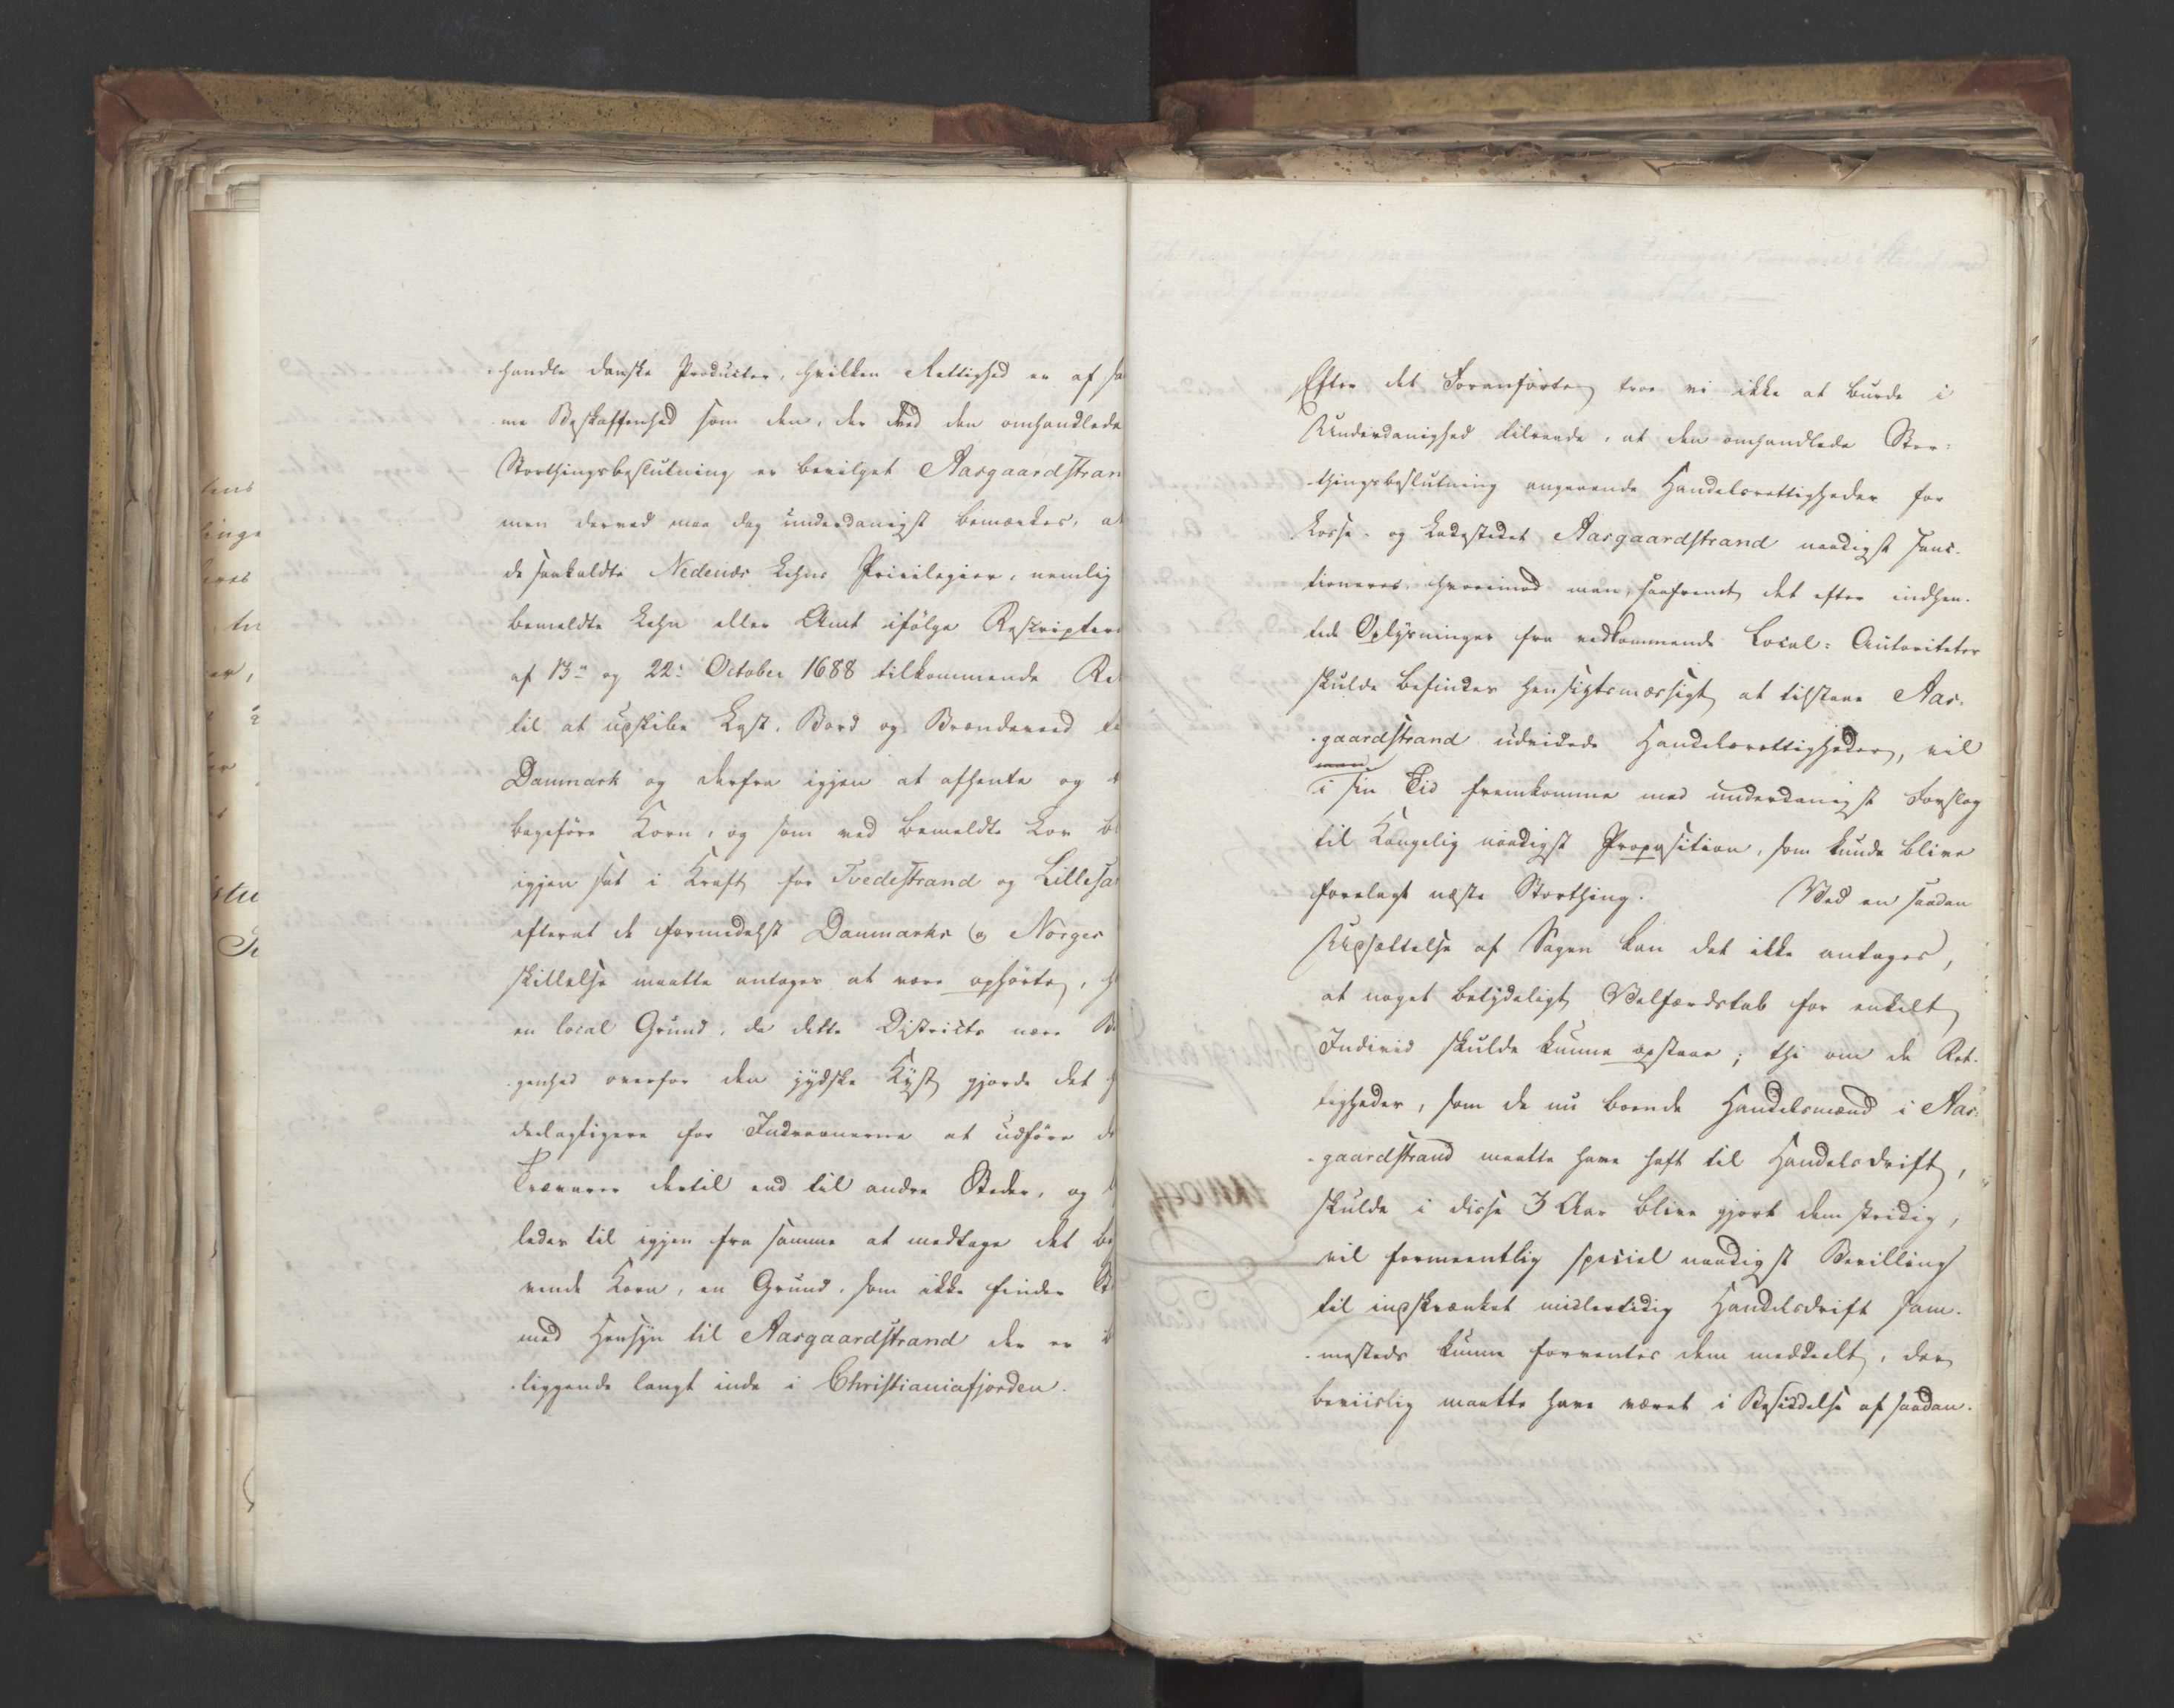 handle danske Producter, hvilken Rettighed er af sa
me Beskaffenhed som den, der ved den omhandlede
Storthingsbeslutning er bevilget Aasgaardstran
men derved maa dog underdanigst bemærkes, at
de saakaldte Nedenæs Lehns Privilegier, nemlig
bemeldte Lehn eller Amt ifölge Rescripter
af 13de og 22de October 1688 tilkommende Ret
til at udskibe Last, Bord og Brændeveed til
Danmark og derfra igjen at afhente og
bageföre Korn, og som ved bemeldte Lov bl
igjen sat i Kraft for Tvedestrand og Lillesa
efterat de formedelst Danmarks og Norges
skillelse maatte antages at være ophörte, h
en local Grund, da dette Districts nære Be
genhed overfor den jydske Kyst gjorde det
deelagtigere for Indvaanerne at udföre de
Trævarer dertil end til andre Steder, og
ledes til igjen fra samme at medtage det be
vende Korn, en Grund, som ikke finder St
med Hensyn til Aasgaardstrand der er
liggende langt inde i Christianiafjorden.
Efter det Foranförte troe vi ikke at burde i
Underdanighed tilraade, at den omhandlede Stor-
thingsbeslutning angaaende Handelsrettigheder for
Losse- og Ladestedet Aasgaardstrand naadigst sanc-
tioneres, hvorimod man, saafremt det efter indhen-
tede Oplysninger fra vedkommende Local-Autoriteter
skulde befindes hensigtsmæssigt at tilstaae Aas-
gaardstrand udvidede Handelsrettigheder, vil
man
i sin Tid fremkomme med underdanigst Forslag
til Kongelig naadigst Proposition, som kunde blive
forelagt næste Storthing. Ved en saadan
Udsættelse af Sagen kan det ikke antages,
at noget betydeligt Velfærdstab for enkelt
Individ skulde kunne opstaae; thi om de Ret-
tigheder, som de nu boende Handelsmænd i Aas-
gaardstrand maatte have haft til Handelsdrift,
skulde i disse 3 Aar blive gjort dem stridig,
vil formeentlig speciel naadigst Bevilling
til indskrænket midlertidig Handelsdrift sam-
mesteds kunne forventes dem meddeelt, der
beviislig maatte have været i Besiddelse af saadan.